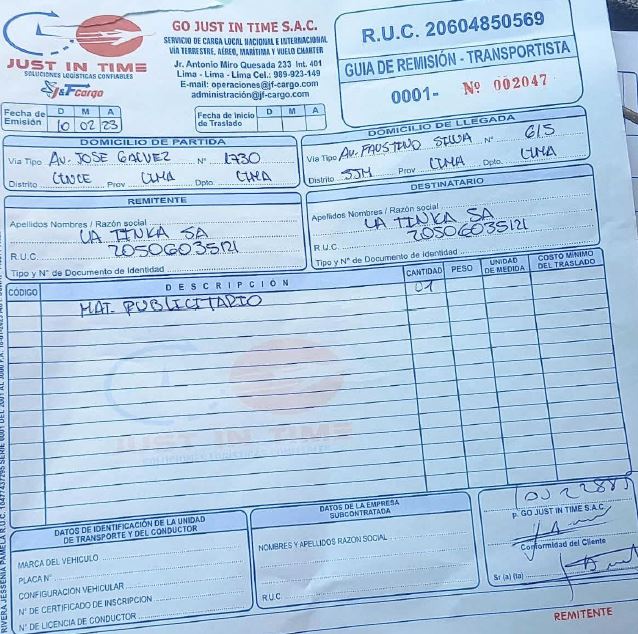 GO JUST IN TIME S.A.C.
SERVICIO DE CARGA LOCAL NACIONAL E INTERNACIONAL
VIA TERRESTRE, AÉREO, MARÍTIMA Y VUELO CHARTER
Jr. Antonio Miro Quesada 233 Int. 401
Lima - Lima - Lima Cel.: 989-923-149
E-mail: operaciones@jf-cargo.com
administración@jf-cargo.com
JUST IN TIME
SOLUCIONES LOGÍSTICAS CONFIABLES
J&F cargo
R.U.C. 20604850569
GUIA DE REMISIÓN - TRANSPORTISTA
0001- Nº 002047
Fecha de Emisión D M A
10 02 23
Fecha de Inicio de Traslado D M A
DOMICILIO DE PARTIDA
Via Tipo AV. JOSE GALVEZ Nº 1730
Distrito LINCE Prov LIMA Dpto. LIMA
DOMICILIO DE LLEGADA
Via Tipo AV. FAUSTINO SILVA Nº 615
Distrito SJM Prov LIMA Dpto. LIMA
REMITENTE
Apellidos Nombres / Razón social LA TINKA SA
R.U.C. 20506035121
Tipo y N° de Documento de Identidad
DESTINATARIO
Apellidos Nombres / Razón social LA TINKA SA
R.U.C. 20506035121
Tipo y N° de Documento de Identidad
CÓDIGO DESCRIPCIÓN CANTIDAD PESO UNIDAD DE MEDIDA COSTO MÍNIMO DEL TRASLADO
MAT. PUBLICITARIO 01
JUST IN TIME
SOLUCIONES LOGÍSTICAS CONFIABLES
DATOS DE IDENTIFICACIÓN DE LA UNIDAD DE TRANSPORTE Y DEL CONDUCTOR
MARCA DEL VEHICULO
PLACA N°
CONFIGURACIÓN VEHICULAR
N° DE CERTIFICADO DE INSCRIPCION
N° DE LICENCIA DE CONDUCTOR
DATOS DE LA EMPRESA SUBCONTRATADA
NOMBRES Y APELLIDOS RAZON SOCIAL
R.U.C.
P. GO JUST IN TIME S.A.C.
Conformidad del Cliente
Sr (a) (ta)
REMITENTE